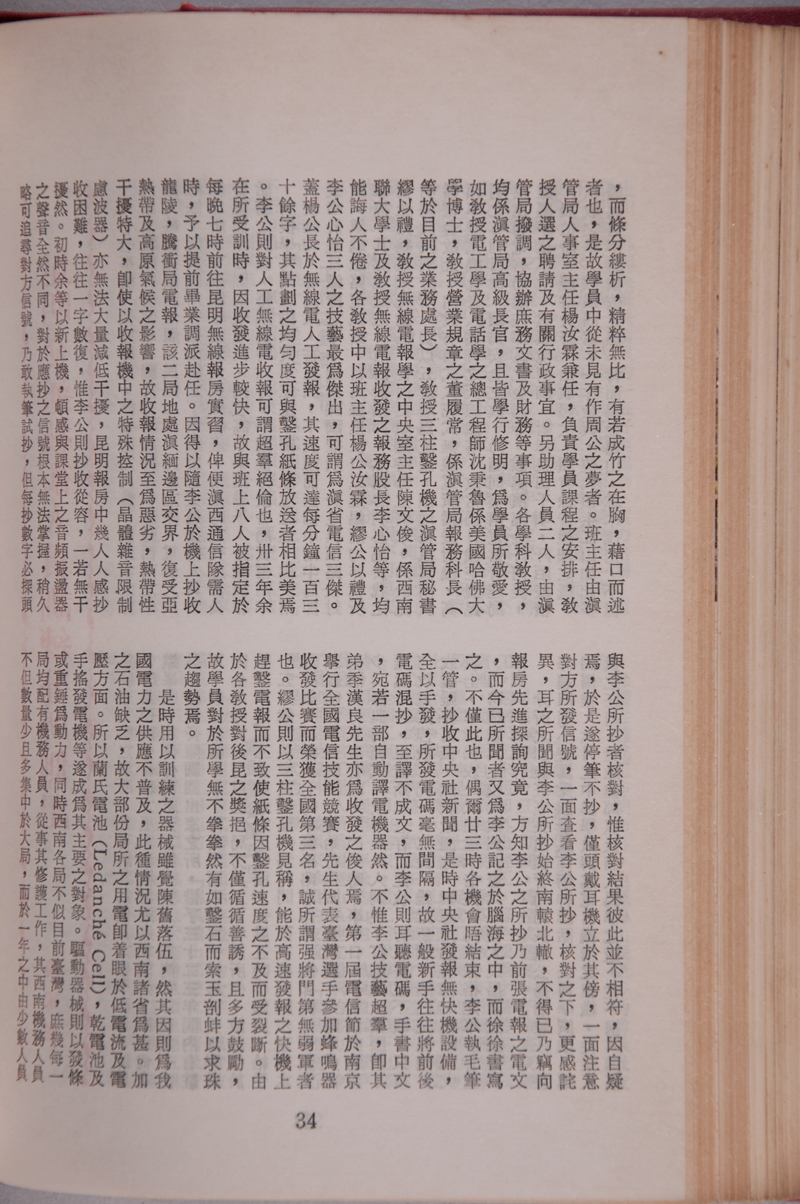 ，而條分縷析，精粹無比，有若成竹之在胸，藉口而述
者也，是故學員中從未見有作周公之夢者。班主任由滇
管局人事室主任楊汝霖兼任，負責學員課程之安排，教
授人選之聘請及有關行政事宜。另助理人員二人，由滇
管局撥調，協辦庶務文書及財務等事項。各學科教授，
均係滇管局高級長官，且皆學行修明，爲學員所敬愛，
如教授電工學及電話學之總工程師沈秉魯係美國哈佛大
學博士，教授營業規章之董履常，係滇管局報務科長（
等於目前之業務處長），教授三柱鑿孔機之滇管局秘書
繆以禮，教授無線電報學之中央室主任陳文俊，係西南
聯大學士及教授無線電報收發之報務股長李心怡等，均
能誨人不倦，各教授中以班主任楊公汝霖，繆公以禮及
李公心怡三人之技藝最爲傑出，可謂爲滇省電信三傑。
蓋楊公長於無線電人工發報，其速度可達每分鐘一百三
十餘字，其點劃之均勻度可與鑿孔紙條放送者相比美焉
。李公則對人工無線電收報可謂超羣絕倫也，卅三年余
在所受訓時，因收發進步較快，故與班上八人被指定於
每晚七時前往昆明無線報房實習，俾便滇西通信隊需人
時，予以提前畢業調派赴任。因得以隨李公於機上抄收
龍陵，騰衝局電報，該二局地處滇緬邊區交界，復受亞
熱帶及高原氣候之影響，故收報情況至爲惡劣，熱帶性
干擾特大，卽使以收報機中之特殊控制（晶體雜音限制
慮波器）亦無法大量減低干擾，昆明報房中幾人人感抄
收困難，往往一字數復，惟李公則抄收從容，一若無干
擾然。初時余等以新上機，頓感與課堂上之音頻振盪器
之聲音全然不同，對於應抄之信號根本無法掌握，稍久
略可追尋對方信號，乃敢執筆試抄，但每抄數字必探頭
與李公所抄者核對，惟核對結果彼此並不相符，因自疑
焉，於是遂停筆不抄，僅頭戴耳機立於其傍，一面注意
對方所發信號，一面查看李公所抄，核對之下，更感詫
異，耳之所聞與李公所抄始終南轅北轍，不得已乃竊向
報房先進探詢究竟，方知李公之所抄乃前張電報之電文
，而今已所聞者又爲李公記之於腦海之中，而徐徐書寫
之。不僅此也，偶爾廿三時各機會晤結束，李公執毛筆
一管，抄收中央社新聞，是時中央社發報無快機設備，
全以手發，所發電碼毫無間隔，故一般新手往往將前後
電碼混抄，至譯不成文，而李公則耳聽電碼，手書中文
，宛若一部自動譯電機器然。不惟李公技藝超羣，卽其
弟季漢良先生亦爲收發之俊人焉，第一屆電信節於南京
舉行全國電信技能競賽，先生代表臺灣選手參加蜂鳴器
收發比賽而榮獲全國第三名，誠所謂强將門第無弱軍者
也。繆公則以三柱鑿孔機見稱，能於高速發報之快機上
趕鑿電報而不致使紙條因鑿孔速度之不及而受裂斷。由
於各教授對後昆之奬挹，不僅循循善誘，且多方鼓勵，
故學員對於所學無不拳拳然有如鑿石而索玉剖蚌以求珠
之趨勢焉。
是時用以訓練之器械雖覺陳舊落伍，然其因則爲我
國電力之供應不普及，此種情況尤以西南諸省爲甚。加
之石油缺乏，故大部份局所之用電卽着眼於低電流及電
壓方面。所以蘭氏電池（Ledanché Cell），乾電池及
手搖發電機等遂成爲其主要之對象。驅動器械則以發條
或重錘爲動力，同時西南各局不似目前臺灣，庶幾每一
局均配有機務人員，從事其修護工作，其西南機務人員
不但數量少且多集中於大局，而於一年之中由少數人員
34